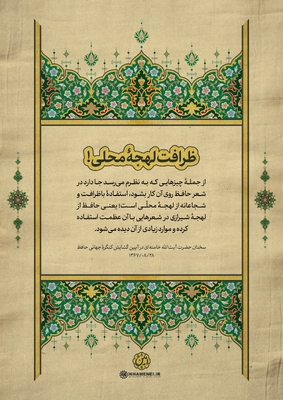 ظرافت لهجهٔ محلی!
از جملهٔ چیزهایی که به نظرم می‌رسد جا دارد در
شعر حافظ روی آن کار بشود، استفادهٔ باظرافت و
شجاعانه از لهجهٔ محلّی است؛ یعنی حافظ از
لهجهٔ شیرازی در شعرهایی با آن عظمت استفاده
کرده و موارد زیادی از آن دیده می‌شود.
سخنان حضرت آیت‌الله خامنه‌ای در آیین گشایش کنگرهٔ جهانی حافظ
۱۳۶۷/۰۸/۲۸
KHAMENEI.IR